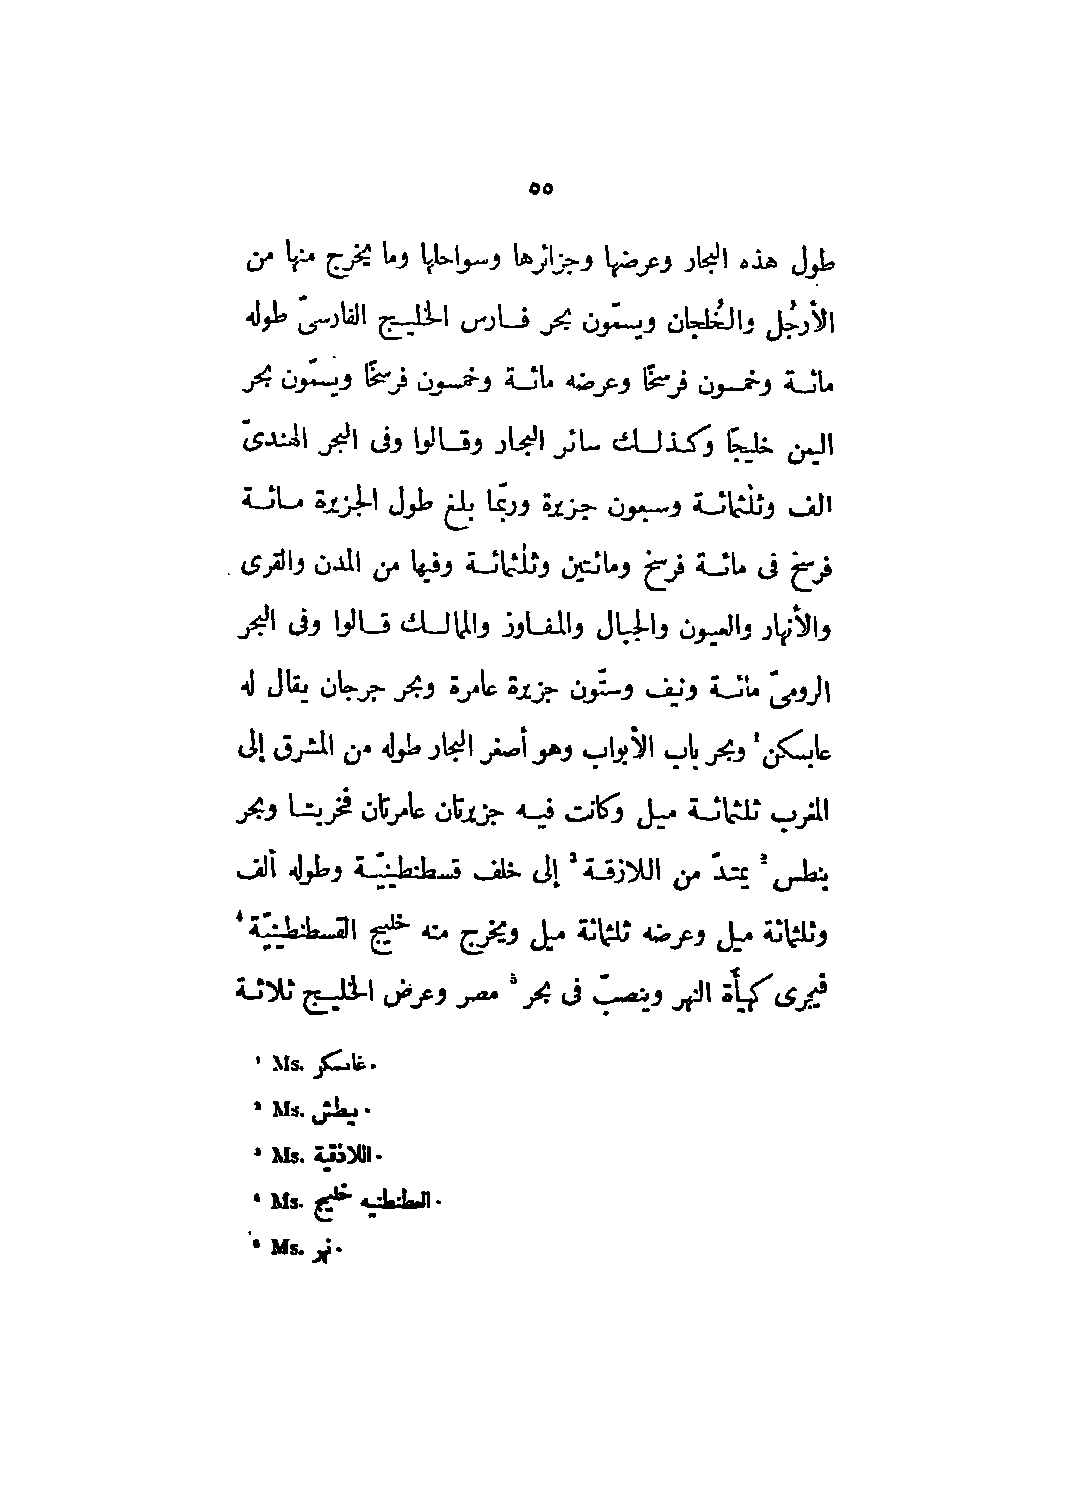 ٥٥
طول هذه البحار وعرضها وجزائرها وسواحلها وما يخرج منها من
الأرجُل والخُلجان ويسمّون بحر فارس الخليج الفارسىّ طوله
مائة وخمسون فرسخًا وعرضه مائة وخمسون فرسخًا ويسمّون بحر
اليمن خليجًا وكذلك سائر البحار وقالوا وفى البحر الهندىّ
الف وثلٰثمائة وسبعون جزيرة وربّما بلغ طول الجزيرة مائة
فرسخ فى مائة فرسخ ومائتين وثلٰثمائة وفيها من المدن والقرى
والأنهار والعيون والجبال والمفاوز والممالك قالوا وفى البحر
الرومىّ مائة ونيف وستّون جزيرة عامرة وبحر جرجان يقال له
عابسكن¹ وبحر باب الأبواب وهو أصغر البحار طوله من المشرق إلى
المغرب ثلثمائة ميل وكانت فيه جزيرتان عامرتان فخربتا وبحر
بنطس² يمتدّ من اللازقة³ إلى خلف قسطنطينيّة وطوله ألف
وثلثمائة ميل وعرضه ثلثمائة ميل ويخرج منه خليج القسطنطينيّة⁴
فيجرى كهيأة النهر وينصبّ فى بحر⁵ مصر وعرض الخليج ثلاثة
¹ Ms. غابسكر.
² Ms. بيطش.
³ Ms. اللاذقية.
⁴ Ms. القطنطنيه خليج.
⁵ Ms. نهر.